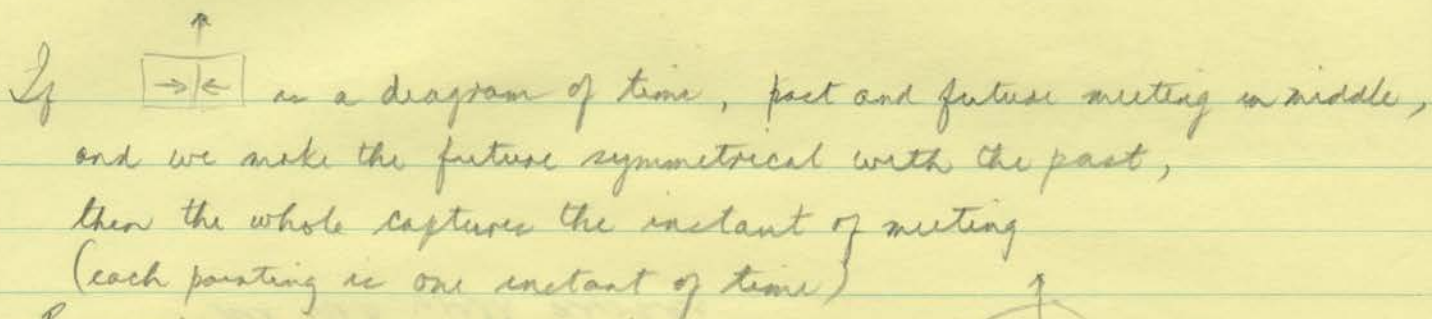 If is a diagram of time, past and future meeting in middle,
and we make the future symmetrical with the past,
then the whole captures the instant of meeting
(each painting is one instant of time)